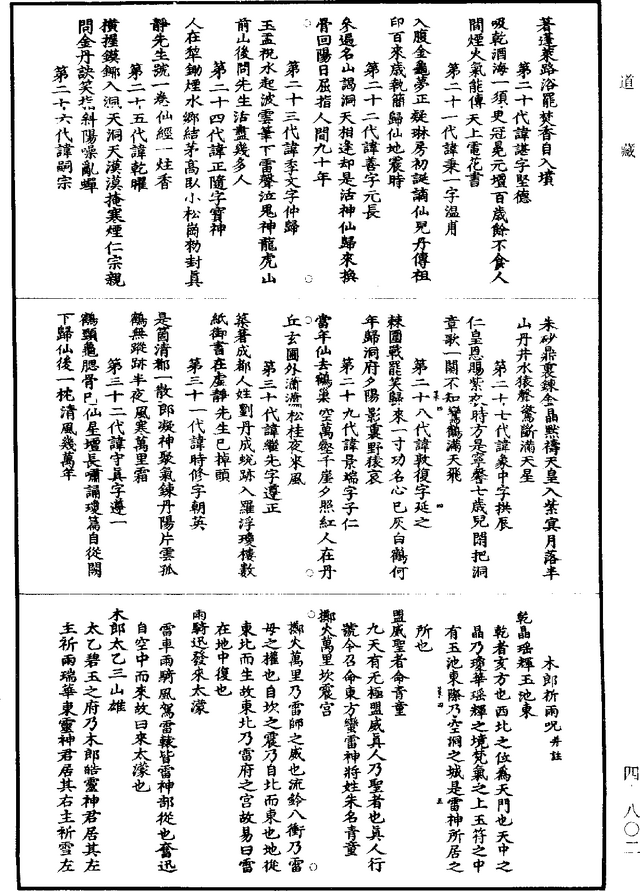 道藏
著蓬萊路浴罷焚香自入墳
第二十代諱諶字堅德
吸乾酒海一須臾冠冕元壇百歲餘不食人
間煙火氣能傳天上電花書
第二十一代諱秉一字溫甫
入腹金龜夢正疑琳房初誕謫仙兒丹傳祖
印百來歲執簡歸仙地震時
第二十二代諱善字元長
參遍名山謁洞天相逢却是活神仙歸來換
骨回陽日屈指人間九十年
第二十三代諱季文字仲歸
玉盂呪水起波雲筆下雷聲泣鬼神龍虎山
前山後問先生活盡幾多人
第二十四代諱正隨字寶神
人在犂鋤煙水鄉結茅高臥小松崗勑封真
靜先生號一卷仙經一炷香
第二十五代諱乾曜
橫握鏌鎁入洞天洞天漠漠掩寒煙仁宗親
問金丹訣笑指斜陽噪亂蟬
第二十六代諱嗣宗
朱砂鼎裏鍊金晶默禱天皇入紫冥月落半
山丹井水猿聲驚斷滿天星
第二十七代諱象中字拱辰
仁皇恩賜紫衣時方是寧馨七歲兒閑把洞
章歌一闋不知鸞鶴滿天飛
第二十八代諱敦復字延之
棘圍戰罷笑歸來一寸功名心已灰白鶴何
年歸洞府夕陽影裏野猿哀
第二十九代諱景端字子仁
當年仙去鶴巢空萬壑千崖夕照紅人在丹
丘玄圃外瀟瀟松桂夜來風
第三十代諱繼先字遵正
築著成都人姓劉丹成蛻跡入羅浮瓊樓數
紙御書在虛靜先生已掉頭
第三十一代諱時修字朝英
是箇清都一散郎凝神聚氣鍊丹陽片雲孤
鶴無蹤跡半夜風寒萬里霜
第三十二代諱守真字遵一
鶴頸龜腮骨已仙星壇長嘯誦瓊篇自從闕
下歸仙後一枕清風幾萬年
木郎祈雨呪并註
乾晶瑤輝玉池東
乾者亥方也西北之位為天門也天中之
晶乃瓊華瑤輝之境梵氣之上玉符之中
有玉池東際乃空洞之城是雷神所居之
所也
盟威聖者命青童
九天有无極盟威真人乃聖者也真人行
號令召命東方蠻雷神將姓朱名青童
擲火萬里坎震宮
擲火萬里乃雷師之威也流鈴八衝乃雷
母之權也自坎之震乃自北而東也地從
東北而生故東北乃雷府之宮故易曰雷
在地中復也
雨騎迅發來太濛
雷車雨騎風駕雷轅皆雷神部從也奮迅
自空中而來故曰來太濛也
木郎太乙三山雄
太乙碧玉之府乃木郎皓靈神君居其左
主祈雨瑞華東靈神君居其右主祈雪左
四·八〇二